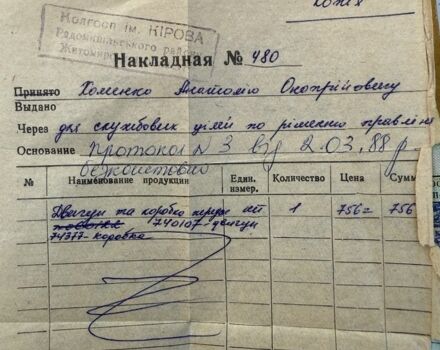 Колгосп ім. КІРОВА
Радомишльського району
Житомир
Накладная № 480
Принято Хоменко Анатолію Онопрійовичу
Выдано
Через для службових цілей по рішенню правління
Основание Протокол N 3 від 2.03.88 р
безкоштовно
№ Наименование продукции Един. измер. Количество Цена Сумм
Двигун та коробка передач 1 756= 756
740107-двигун
74377-коробка